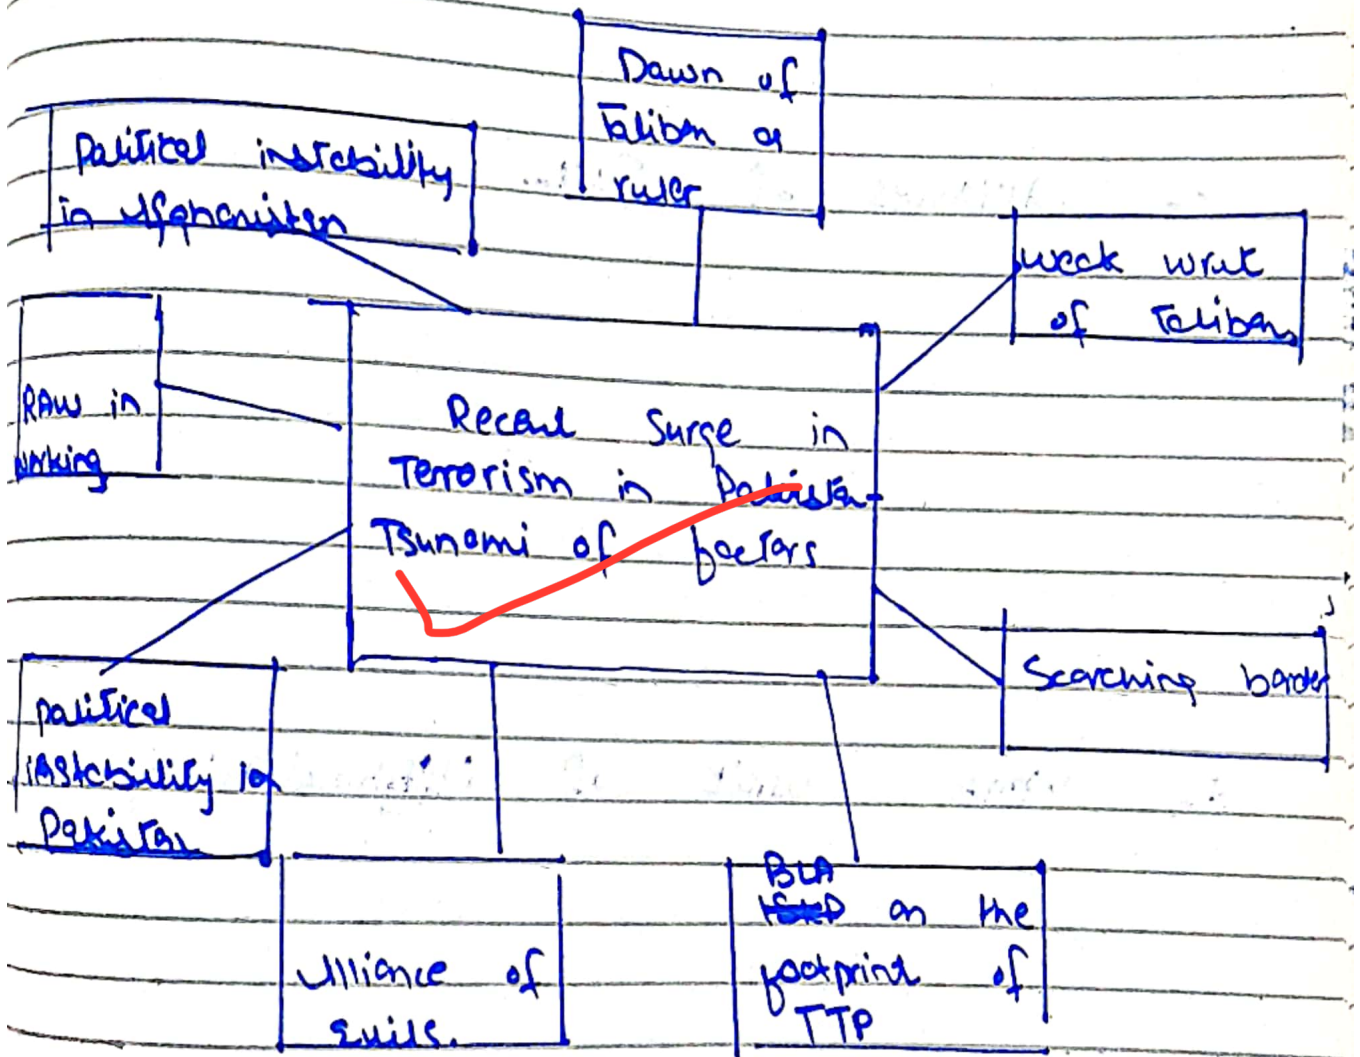 Dawn of
Taliban as
ruler
Political instability
in Afghanistan
weak writ
of Taliban
RAW in
working
Recent Surge in
Terrorism in Pakistan-
Tsunami of factors
Political
instability in
Pakistan
Scorching border
Alliance of
Evils.
BLA
on the
footprint of
TTP